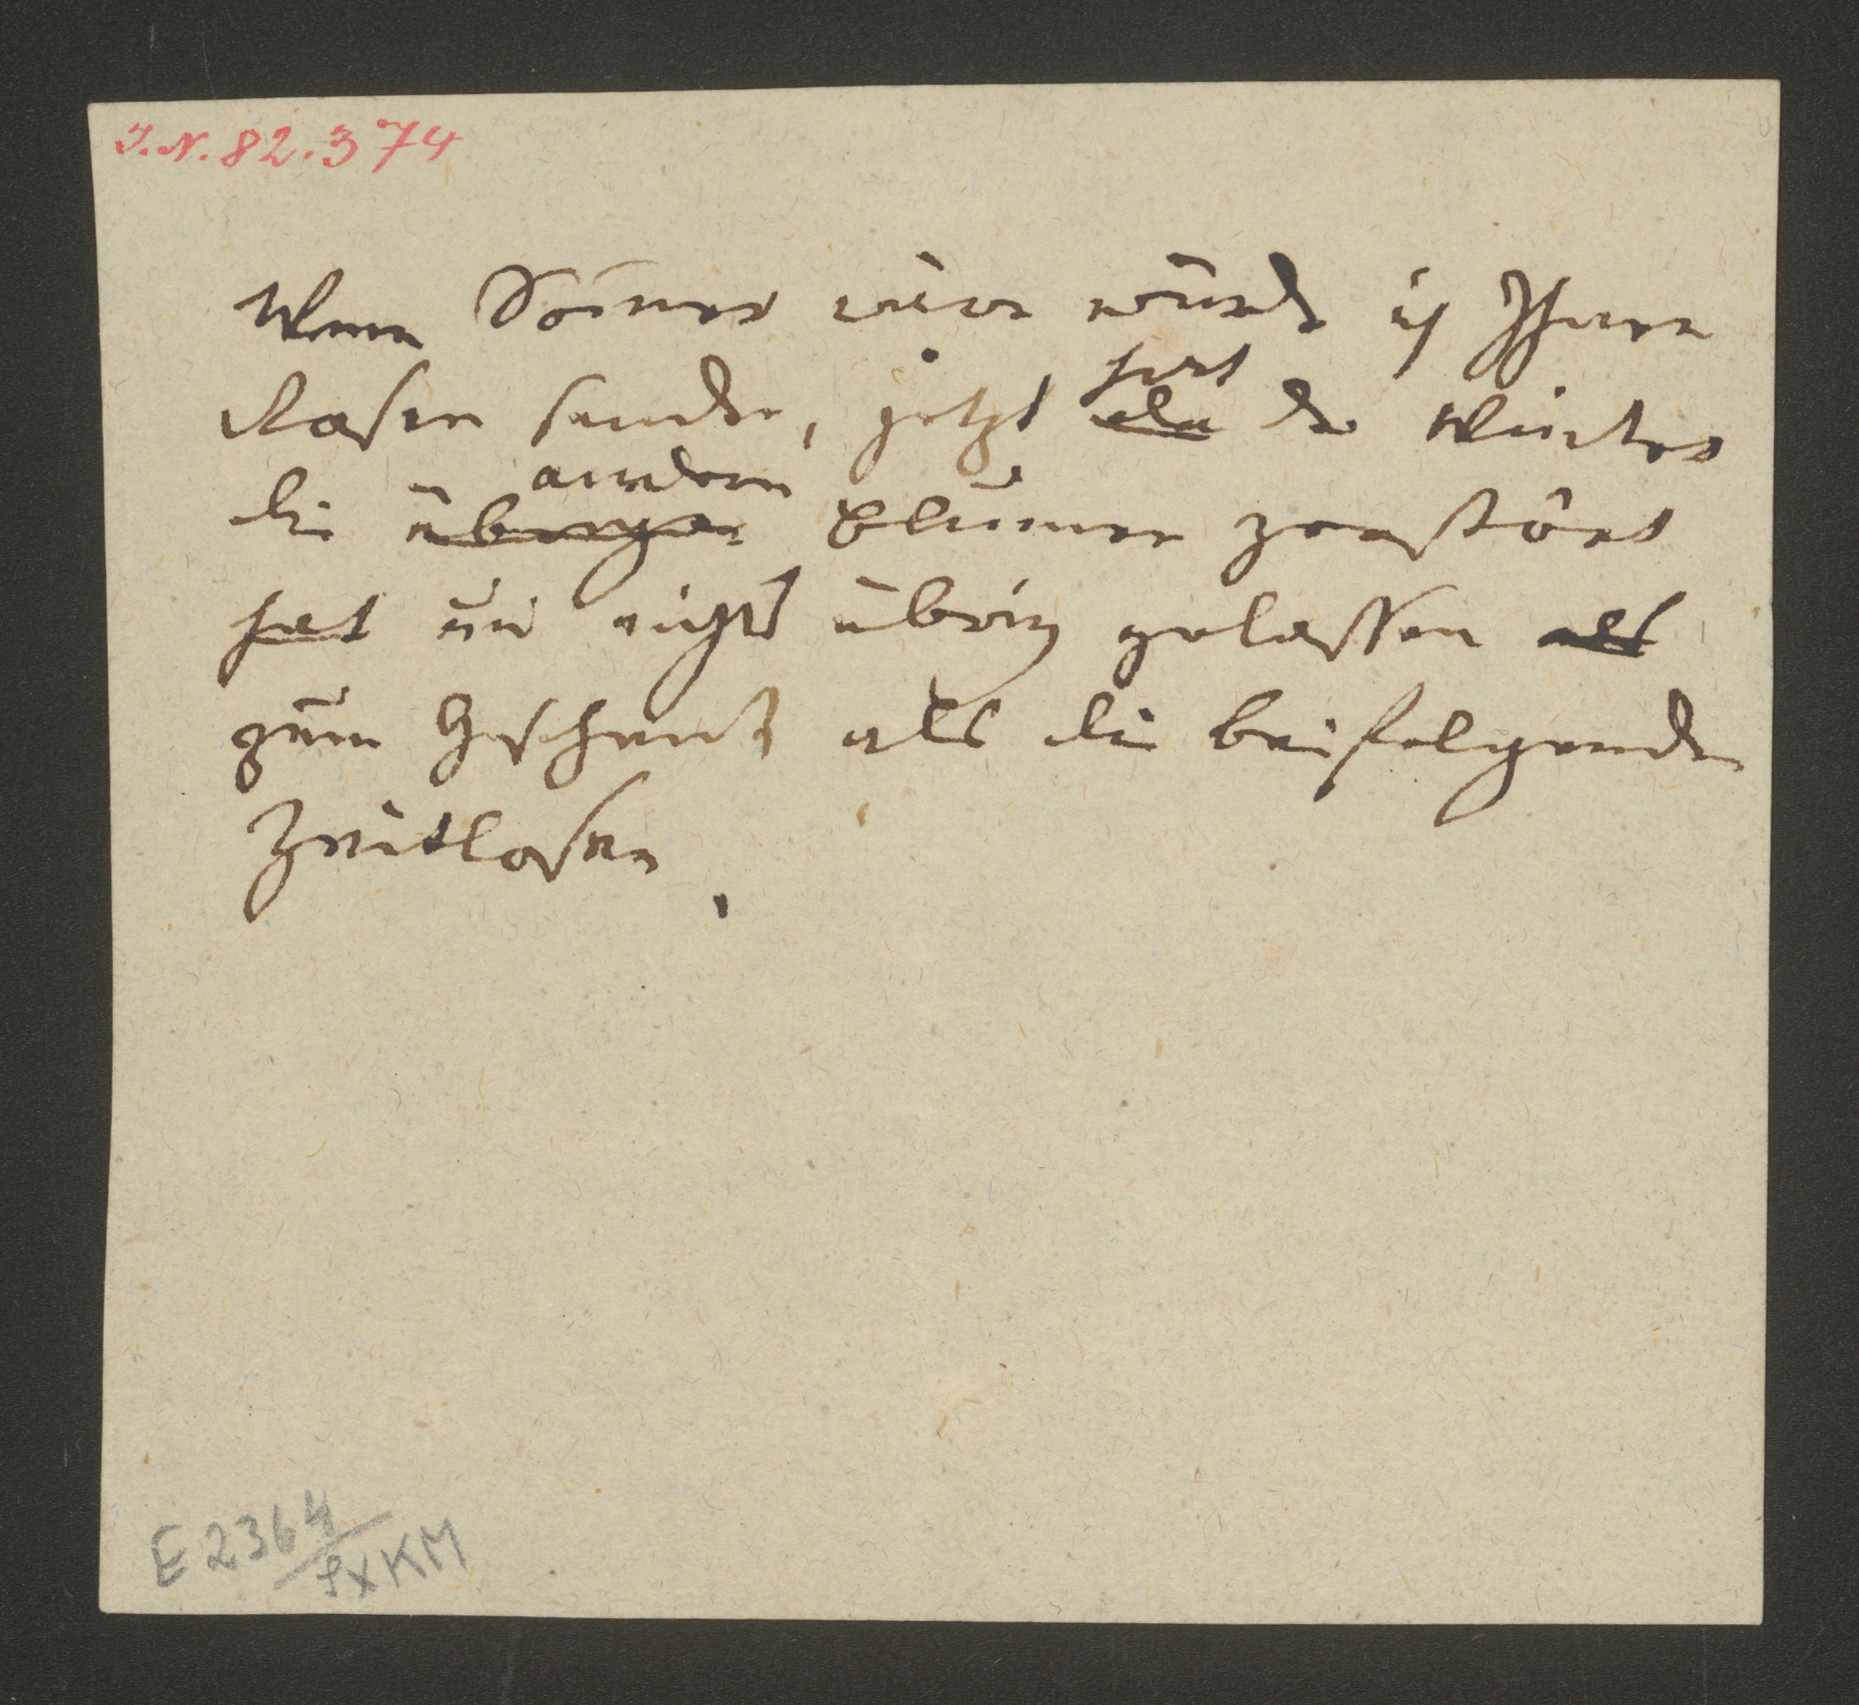 I.N. 82.374
Wenn Som̄er wäre würde ich Ihnen
hat
Rosen senden, jetzt da der Winter
andern
die übrigen Blumen zerstört
hat und nichts übrig gelassen als
zum Geschenk als die beifolgenden
Zeitlosen.
E 2364
KM